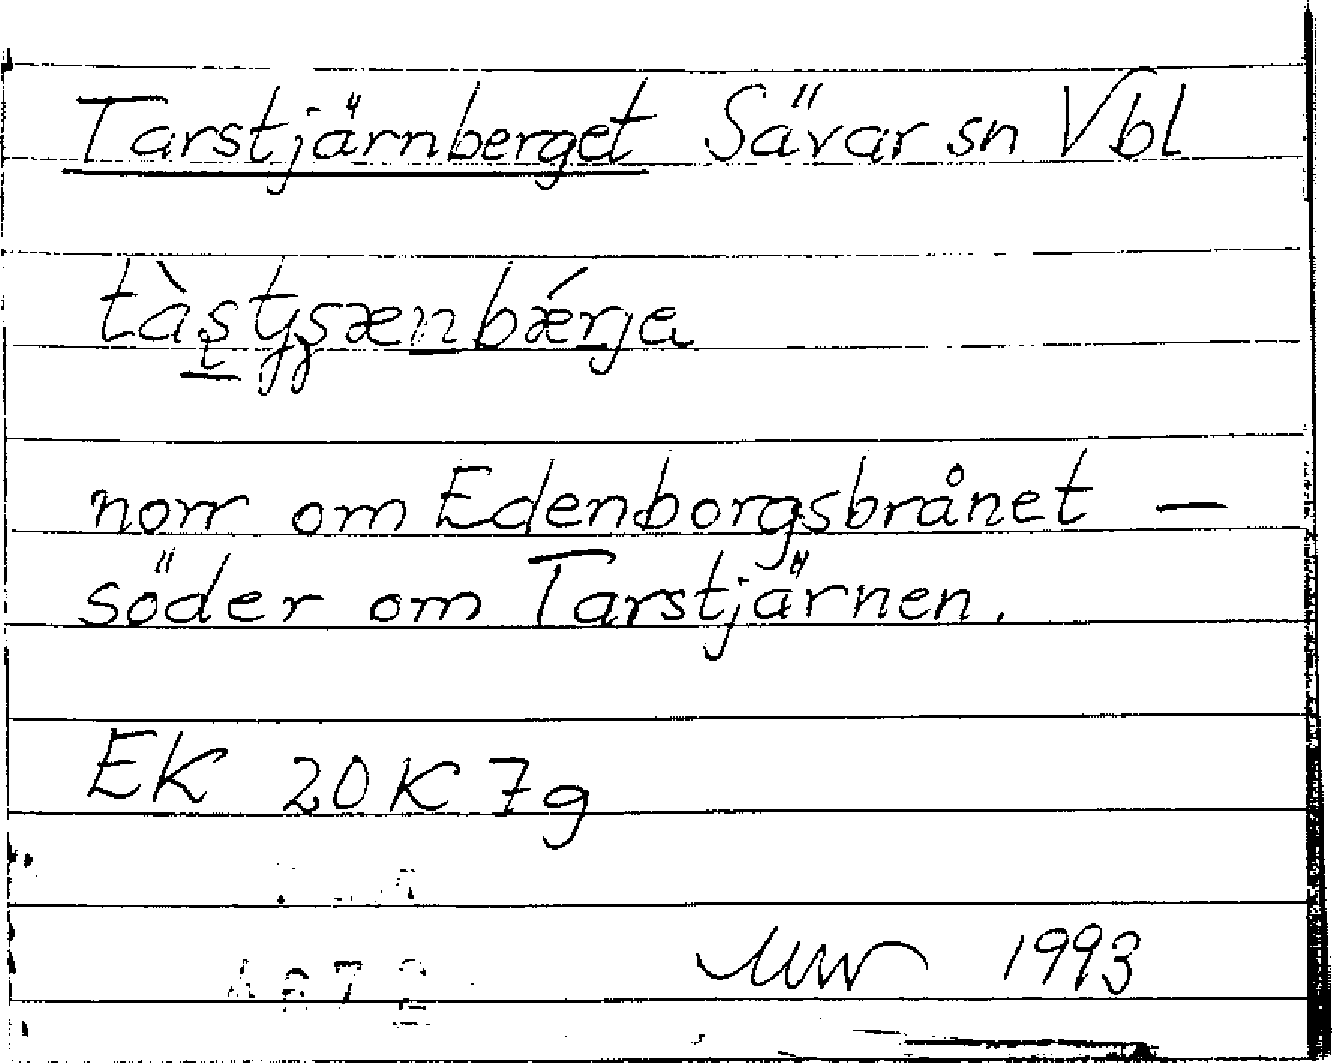 Tarstjärnberget Sävar sn Vbl
tàştjsænbǽrja
norr om Edenborgsbrånet —
söder om Tarstjärnen.
EK 20K 7g
1993